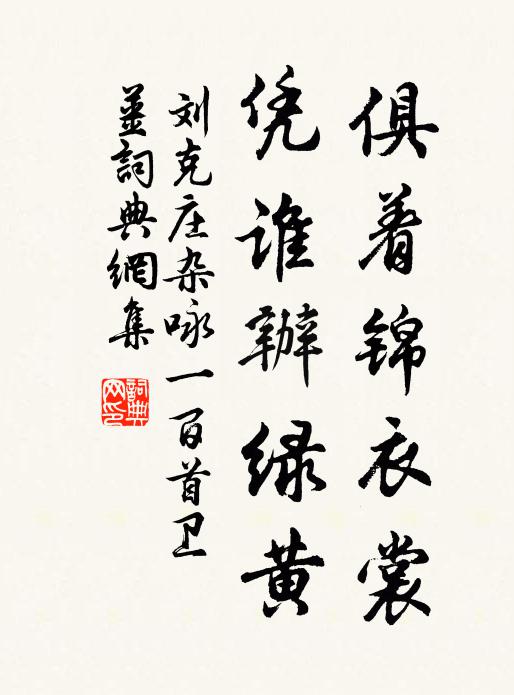 俱着锦衣裳
凭谁辨绿黄
刘克庄杂咏一百首卫
薑詞典網集
詞典
网印